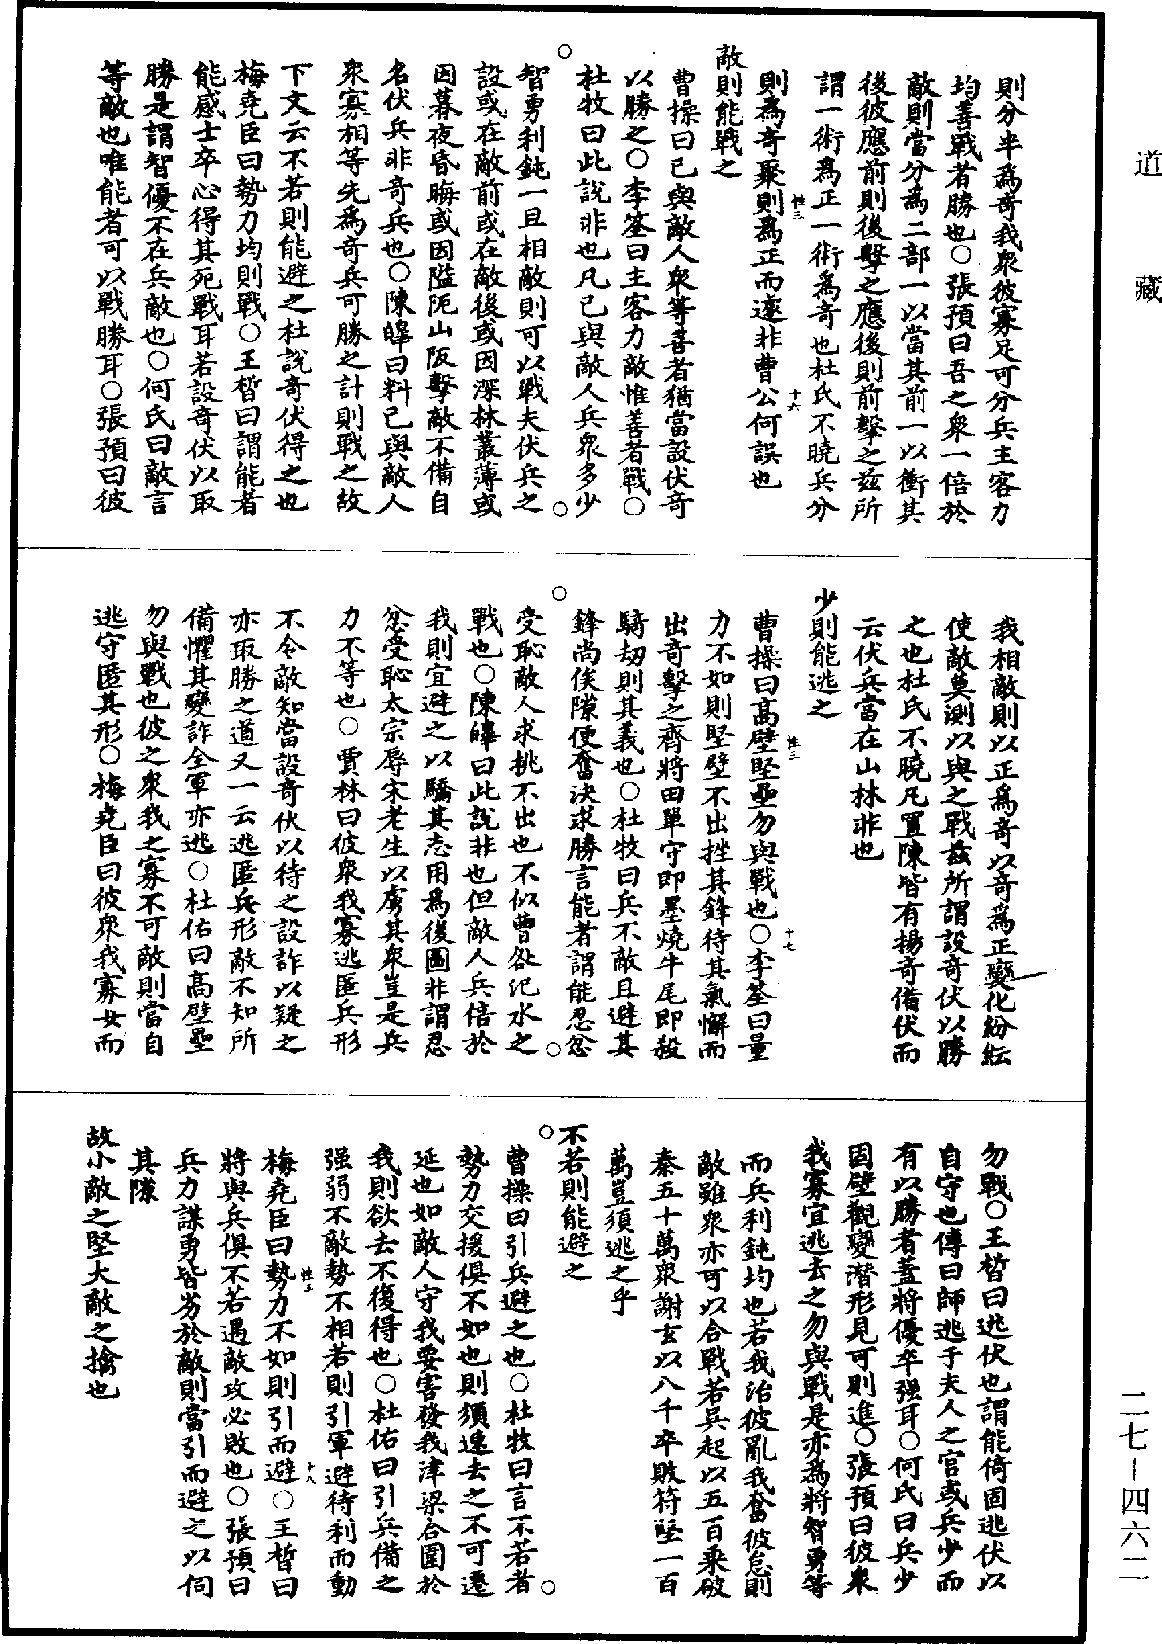 道藏
則分半為奇我衆彼寡足可分兵主客力
均善戰者勝也○張預曰吾之衆一倍於
敵則當分為二部一以當其前一以衝其
後彼應前則後擊之應後則前擊之茲所
謂一術為正一術為奇也杜氏不曉兵分
則為奇聚則為正而遽非曹公何誤也
敵則能戰之
曹操曰已與敵人衆等善者猶當設伏奇
以勝之○李筌曰主客力敵惟善者戰○
杜牧曰此說非也凡已與敵人兵衆多少
智勇利鈍一旦相敵則可以戰夫伏兵之
設或在敵前或在敵後或因深林叢薄或
因暮夜昏晦或因隘阨山阪擊敵不備自
名伏兵非奇兵也○陳皥曰料已與敵人
衆寡相等先為奇兵可勝之計則戰之故
下文云不若則能避之杜說奇伏得之也
梅堯臣曰勢力均則戰○王晳曰謂能者
能感士卒心得其死戰耳若設奇伏以取
勝是謂智優不在兵敵也○何氏曰敵言
等敵也唯能者可以戰勝耳○張預曰彼
我相敵則以正為奇以奇為正變化紛紜
使敵莫測以與之戰茲所謂設奇伏以勝
之也杜氏不曉凡置陳皆有揚奇備伏而
云伏兵當在山林非也
少則能逃之
曹操曰高壁堅壘勿與戰也○李筌曰量
力不如則堅壁不出挫其鋒待其氣懈而
出奇擊之齊將田單守即墨燒牛尾即殺
騎劫則其義也○杜牧曰兵不敵且避其
鋒尚俟隙便奮決求勝言能者謂能忍忿
受恥敵人求挑不出也不似曹咎汜水之
戰也○陳皥曰此說非也但敵人兵倍於
我則宜避之以驕其志用為後圖非謂忍
忿受恥太宗辱宋老生以虜其衆豈是兵
力不等也○賈林曰彼衆我寡逃匿兵形
不令敵知當設奇伏以待之設詐以疑之
亦取勝之道又一云逃匿兵形敵不知所
備懼其變詐全軍亦逃○杜佑曰高壁壘
勿與戰也彼之衆我之寡不可敵則當自
逃守匿其形○梅堯臣曰彼衆我寡去而
勿戰○王晳曰逃伏也謂能倚固逃伏以
自守也傳曰師逃于夫人之宮或兵少而
有以勝者蓋將優卒强耳○何氏曰兵少
固壁觀變潛形見可則進○張預曰彼衆
我寡宜逃去之勿與戰是亦為將智勇等
而兵利鈍均也若我治彼亂我奮彼怠則
敵雖衆亦可以合戰若吳起以五百乘破
秦五十萬衆謝玄以八千卒敗苻堅一百
萬豈須逃之乎
不若則能避之
曹操曰引兵避之也○杜牧曰言不若者
勢力交援俱不如也則須速去之不可遷
延也如敵人守我要害發我津梁合圍於
我則欲去不復得也○杜佑曰引兵備之
强弱不敵勢不相若則引軍避待利而動
梅堯臣曰勢力不如則引而避○王晳曰
將與兵俱不若遇敵攻必敗也○張預曰
兵力謀勇皆劣於敵則當引而避之以伺
其隙
故小敵之堅大敵之擒也
二七－四六二